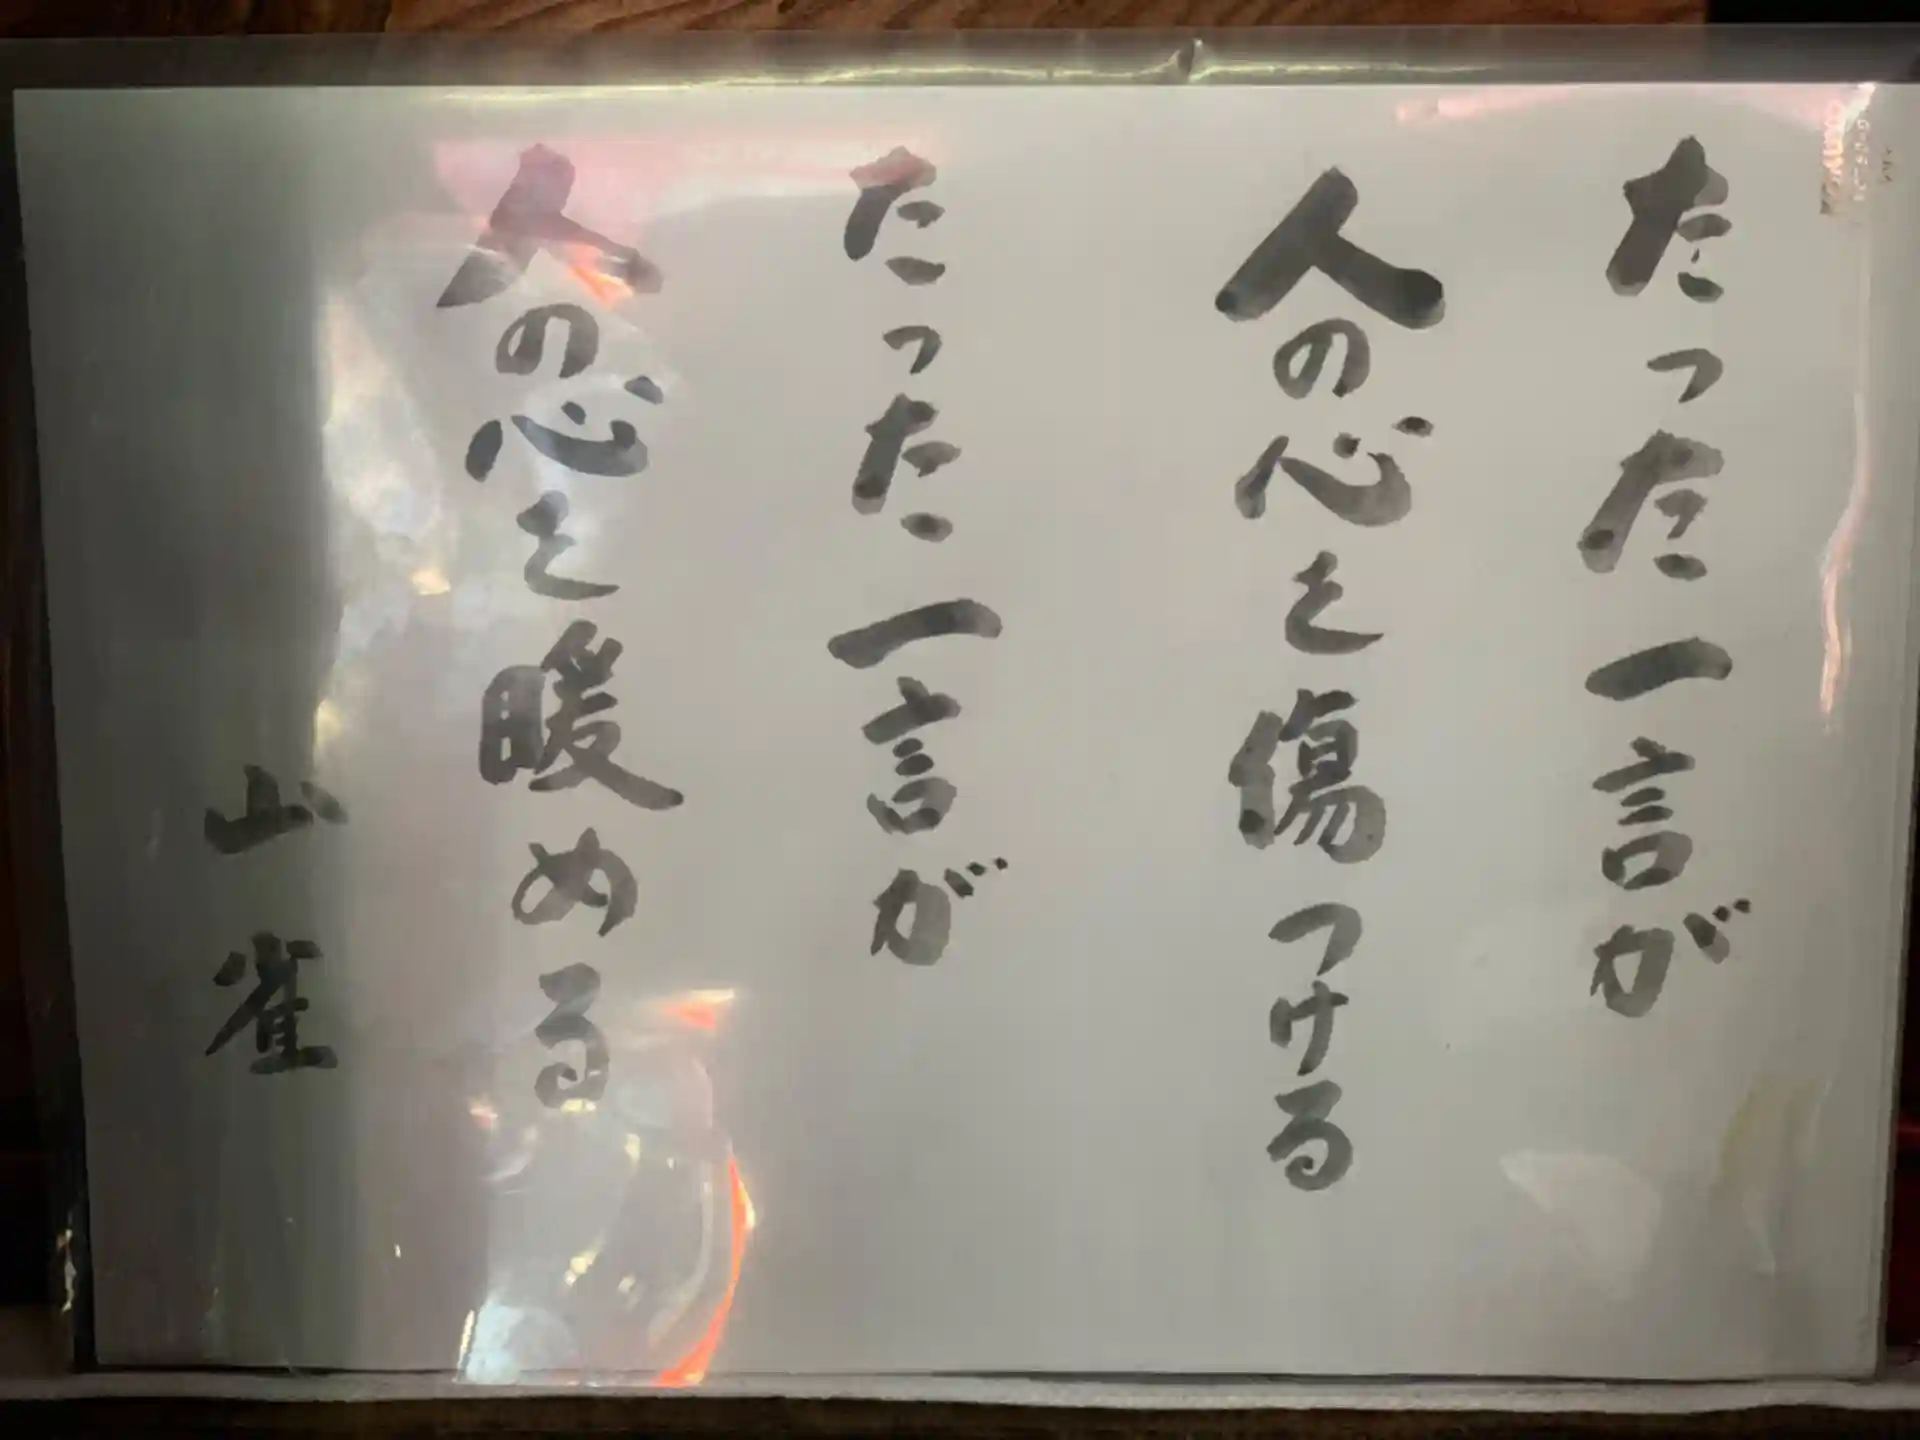 たった一言が
人の心を傷つける
たった一言が
人の心を暖める
山雀